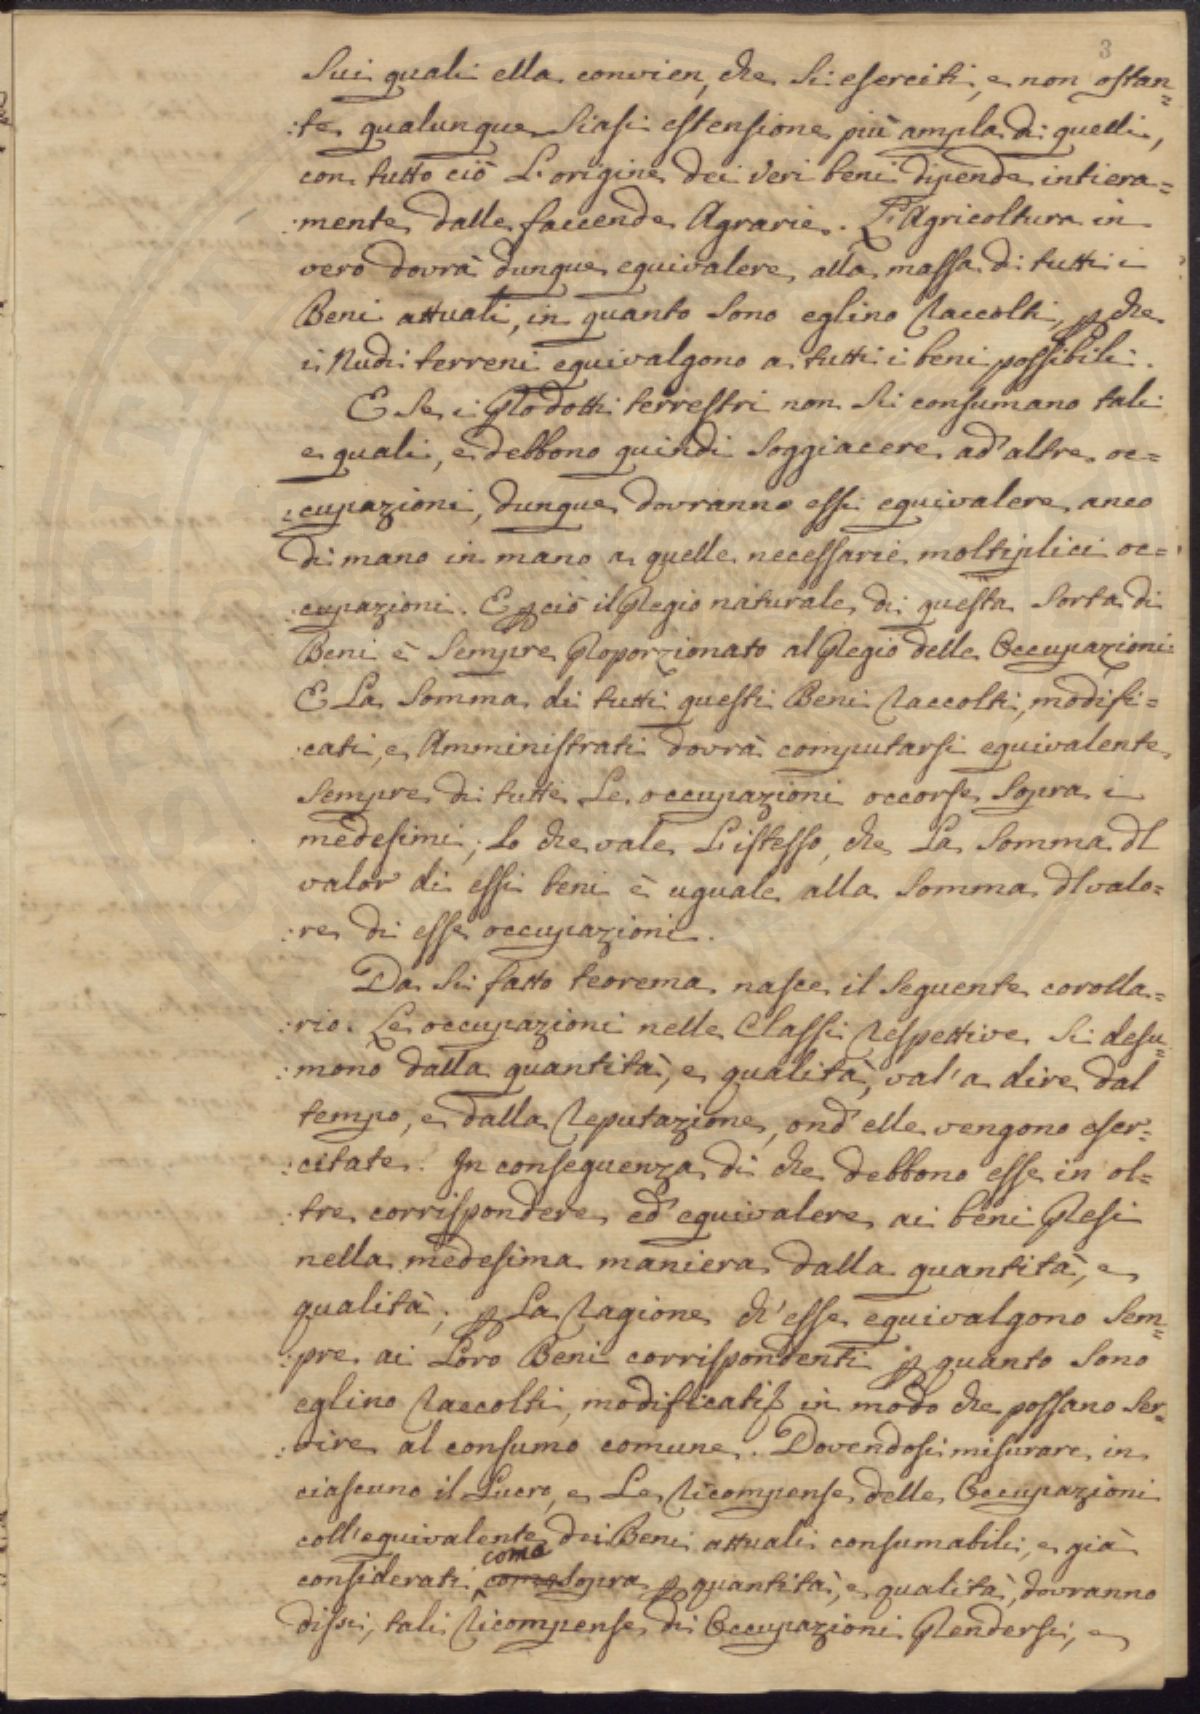 3
Sui quali ella convien, che si eserciti, e non ostan=
:te qualunque siasi estensione più ampla di quelli,
con tutto ciò L'origine dei veri beni dipende intiera=
:mente dalle faccende Agrarie. L'Agricoltura in
vero dovrà dunque equivalere alla massa di tutti i
Beni attuali, in quanto sono eglino raccolti, p che
i Nudi terreni equivalgono a tutti i beni possibili.
E se i Prodotti terrestri non si consumano tali
e quali, e debbono quindi soggiacere ad'altre oc=
:cupazioni, dunque dovranno essi equivalere anco
di mano in mano a quelle necessarie moltiplici oc=
:cupazioni. E pciò il Pregio naturale di questa sorta di
Beni è sempre Proporzionato al Pregio delle Occupazioni
E La somma di tutti questi Beni raccolti, modifi=
:cati, e Amministrati dovrà computarsi equivalente
sempre di tutte Le occupazioni occorse sopra i
medesimi; Lo che vale L'istesso, che La somma dl
valor di essi beni è uguale alla somma dl valo=
:re di esse occupazioni.
Da si fatto teorema nasce il seguente corolla=
:rio. Le occupazioni nelle Classi respettive si desu=
:mono dalla quantità, e qualità, val'a dire dal
tempo, e dalla reputazione, ond'elle vengono eser=
:citate. In conseguenza di che debbono esse in ol=
:tre corrispondere ed'equivalere ai beni Presi
nella medesima maniera dalla quantità, e
qualità; p La ragione ch'esse equivalgono sem=
:pre ai Loro Beni corrispondenti p quanto sono
eglino raccolti, modificati in modo che possano ser=
:vire al consumo comune. Dovendosi misurare in
ciascuno il Lucro, e Le ricompense delle Occupazioni
coll'equivalente dei Beni attuali consumabili, e già
come
considerati sopra p quantità, e qualità, dovranno
dissi, tali ricompense di Occupazioni Prendersi, e